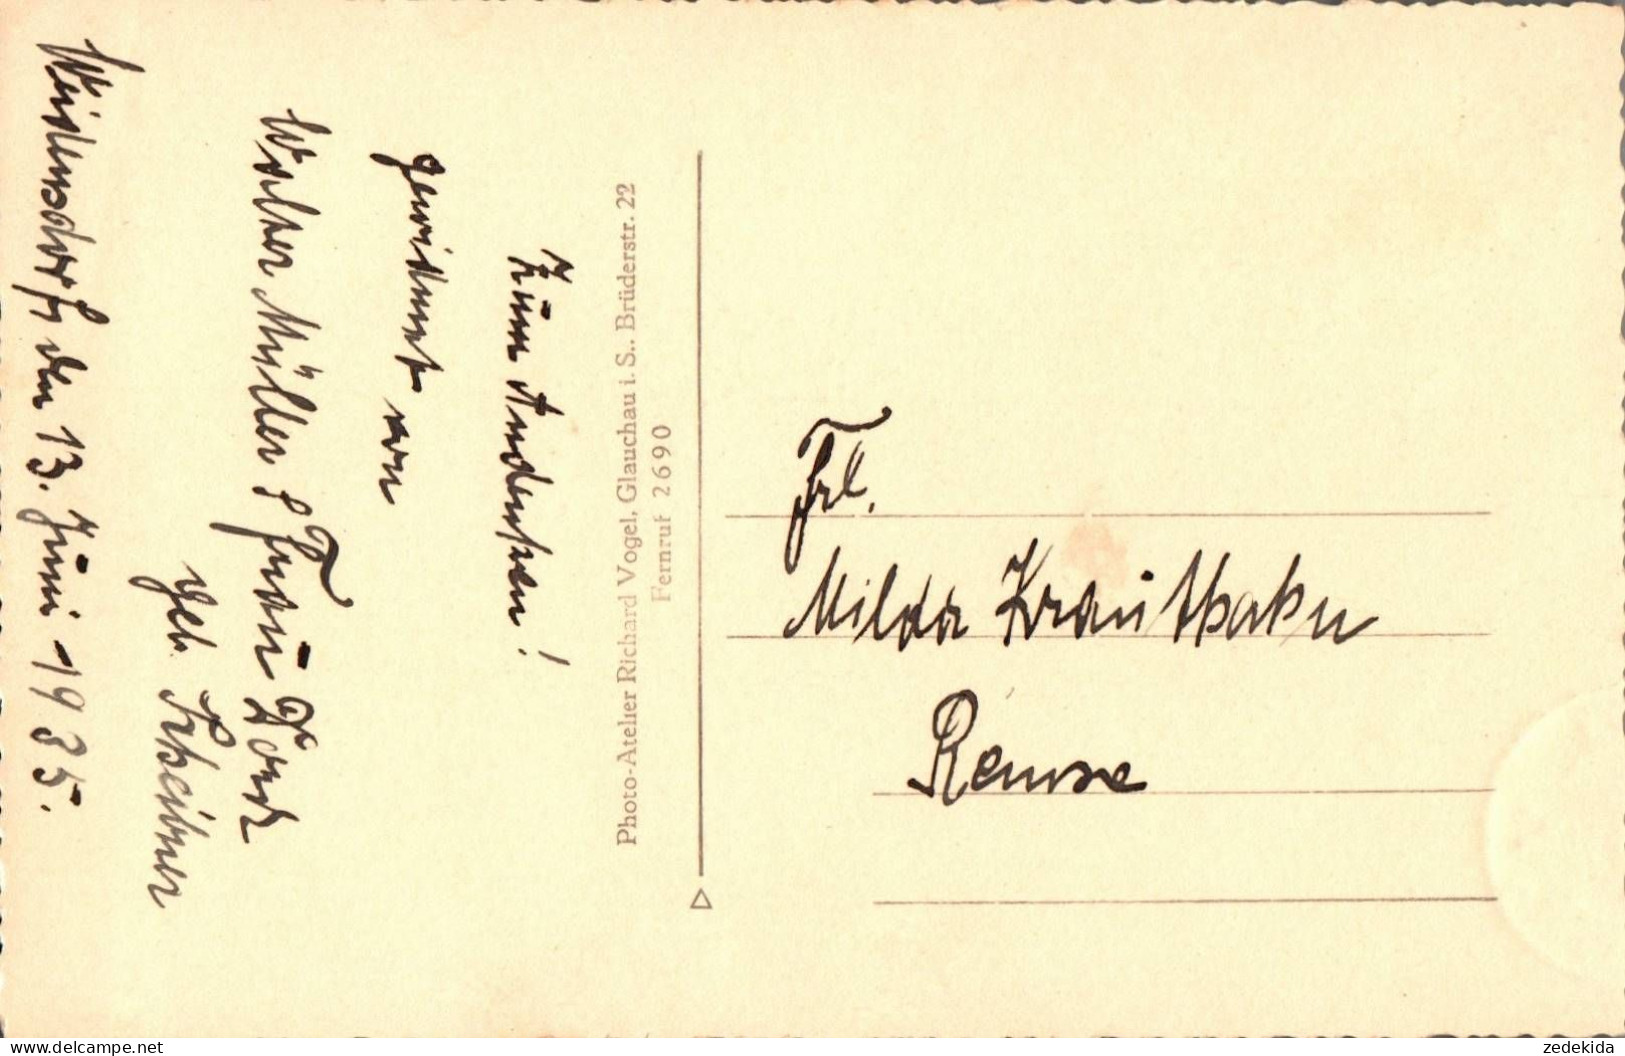 Zum Andenken!
gewidmet von
Walter Müller & Frau Dora
geb. Scheibner
Weidensdorf, den 13. Juni 1935.
Photo-Atelier Richard Vogel, Glauchau i. S., Brüderstr. 22
Fernruf 2690
Frl.
Milda Krauthahn
Remse
zedekida